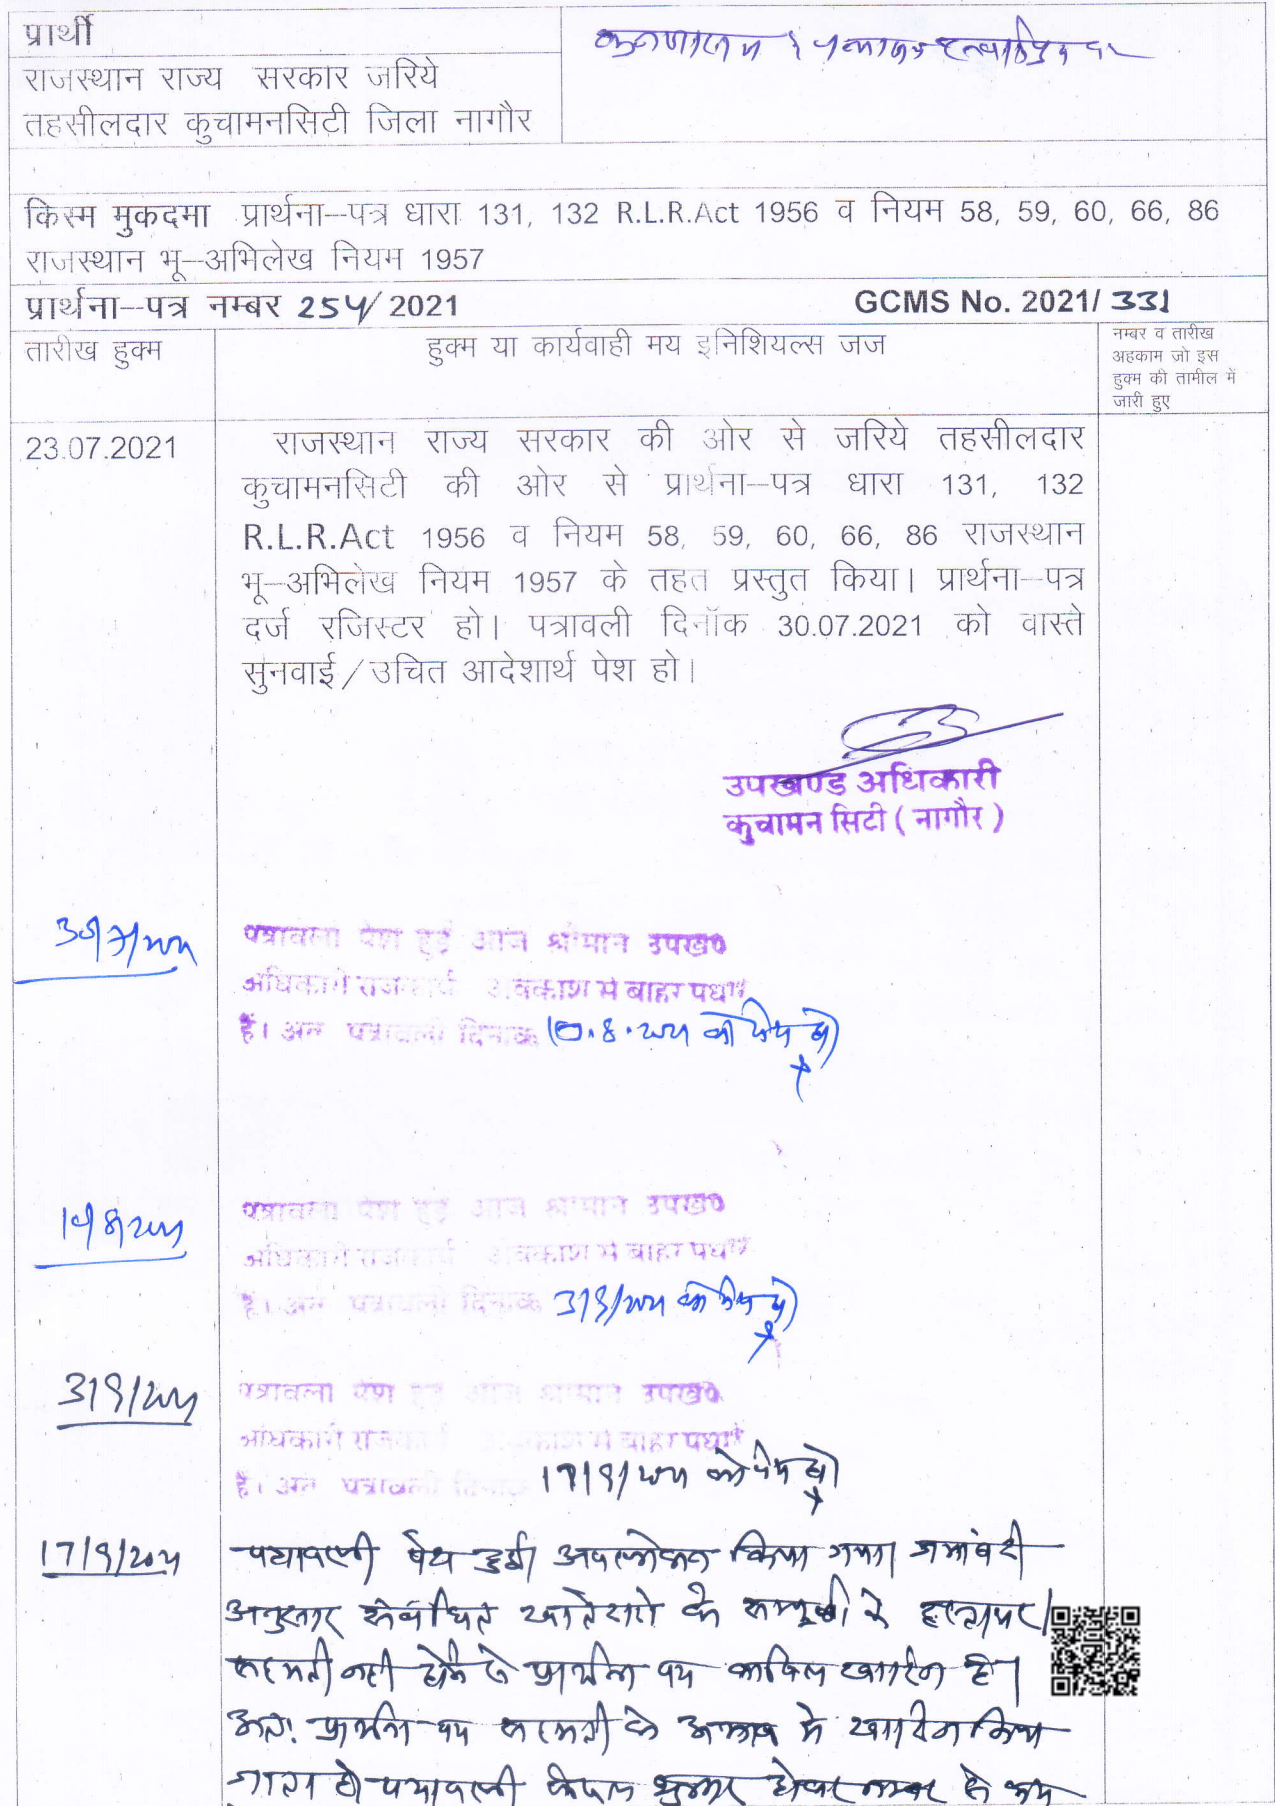 प्रार्थी
राजस्थान राज्य सरकार जरिये
तहसीलदार कुचामनसिटी जिला नागौर
किस्म मुकदमा प्रार्थना–पत्र धारा 131, 132 R.L.R.Act 1956 व नियम 58, 59, 60, 66, 86
राजस्थान भू–अभिलेख नियम 1957
प्रार्थना–पत्र नम्बर 254/2021 GCMS No. 2021/331
तारीख हुक्म
हुक्म या कार्यवाही मय इनिशियल्स जज
नम्बर व तारीख
अहकाम जो इस
हुक्म की तामील में
जारी हुए
23.07.2021
राजस्थान राज्य सरकार की ओर से जरिये तहसीलदार
कुचामनसिटी की ओर से प्रार्थना–पत्र धारा 131, 132
R.L.R.Act 1956 व नियम 58, 59, 60, 66, 86 राजस्थान
भू–अभिलेख नियम 1957 के तहत प्रस्तुत किया। प्रार्थना–पत्र
दर्ज रजिस्टर हो। पत्रावली दिनॉक 30.07.2021 को वास्ते
सुनवाई/उचित आदेशार्थ पेश हो।
उपखण्ड अधिकारी
कुचामन सिटी ( नागौर )
30/7/2021
पत्रावली पेश हुई आज श्रीमान उपख०
अधिकारी राजकार्य अवकाश में बाहर पधारे
है। अतः पत्रावली दिनांक को पेश हो
पत्रावली पेश हुई आज श्रीमान उपख०
अधिकारी राजकार्य अवकाश में बाहर पधारे
है। अतः पत्रावली दिनांक 3/9/2021 को पेश हो
3/9/2021
पत्रावली पेश हुई आज श्रीमान उपख०
अधिकारी राजकार्य अवकाश में बाहर पधारे
है। अतः पत्रावली दिनांक 17/9/2021 को पेश हो
17/9/2021
पत्रावली पेश हुई। अवलोकन किया गया। जमाबंदी
अनुसार संबंधित खातेदारो के सम्पूर्ण हस्ताक्षर/
सहमती नही होने से प्रार्थना पत्र काबिल खारिज है।
अतः प्रार्थना पत्र सहमती के अभाव में खारिज किया
जाता है। पत्रावली फैसल शुमार होकर नम्बर से कम